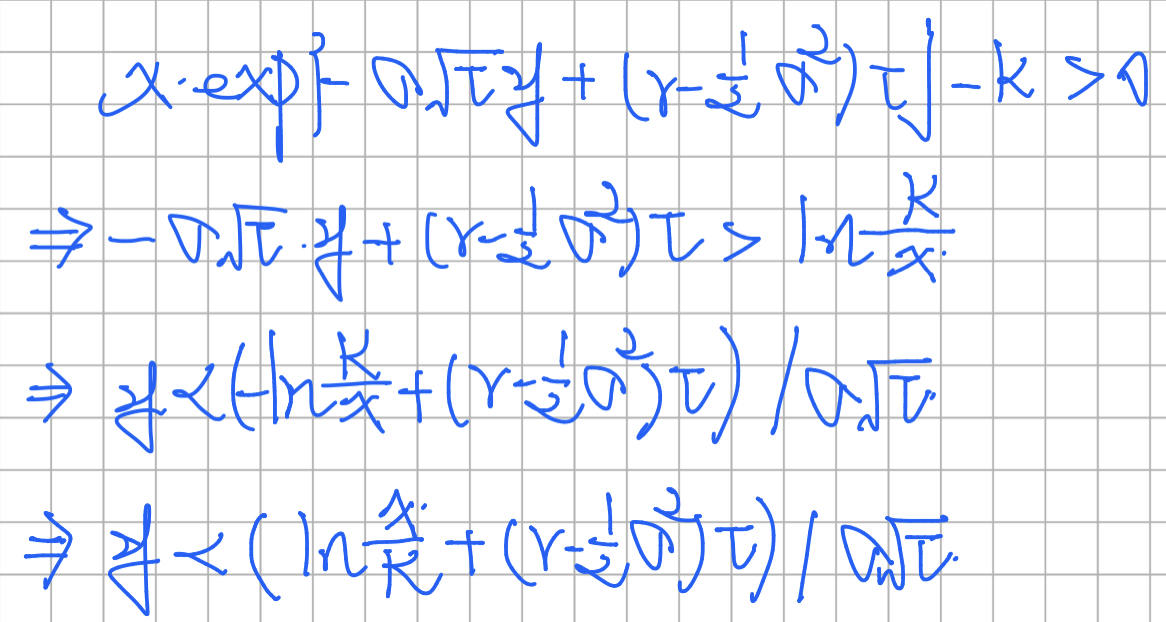 x·exp{-σ√τ y + (r-½σ²)τ} - K > 0
⇒ -σ√τ·y + (r-½σ²)τ > ln K/x
⇒ y < (-ln K/x + (r-½σ²)τ) / σ√τ
⇒ y < (ln x/K + (r-½σ²)τ) / σ√τ